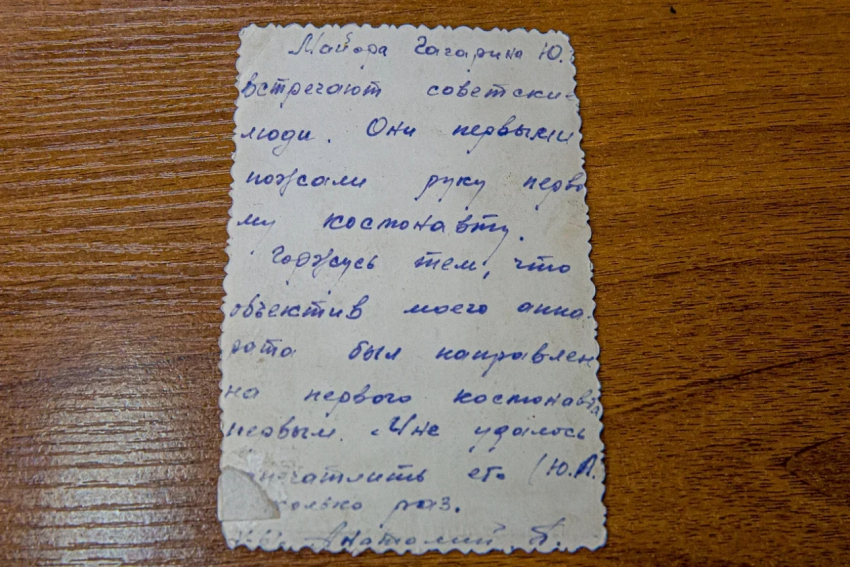 Майора Гагарина Ю.
встречают советски-
люди. Они первыми
пожали руку перво
му космонавту.
Горжусь тем, что
объектив моего аппа-
рата был направлен
на первого космонавта
первым. Мне удалось
печатлить его (Ю.А.
сколько раз.
Анатолий